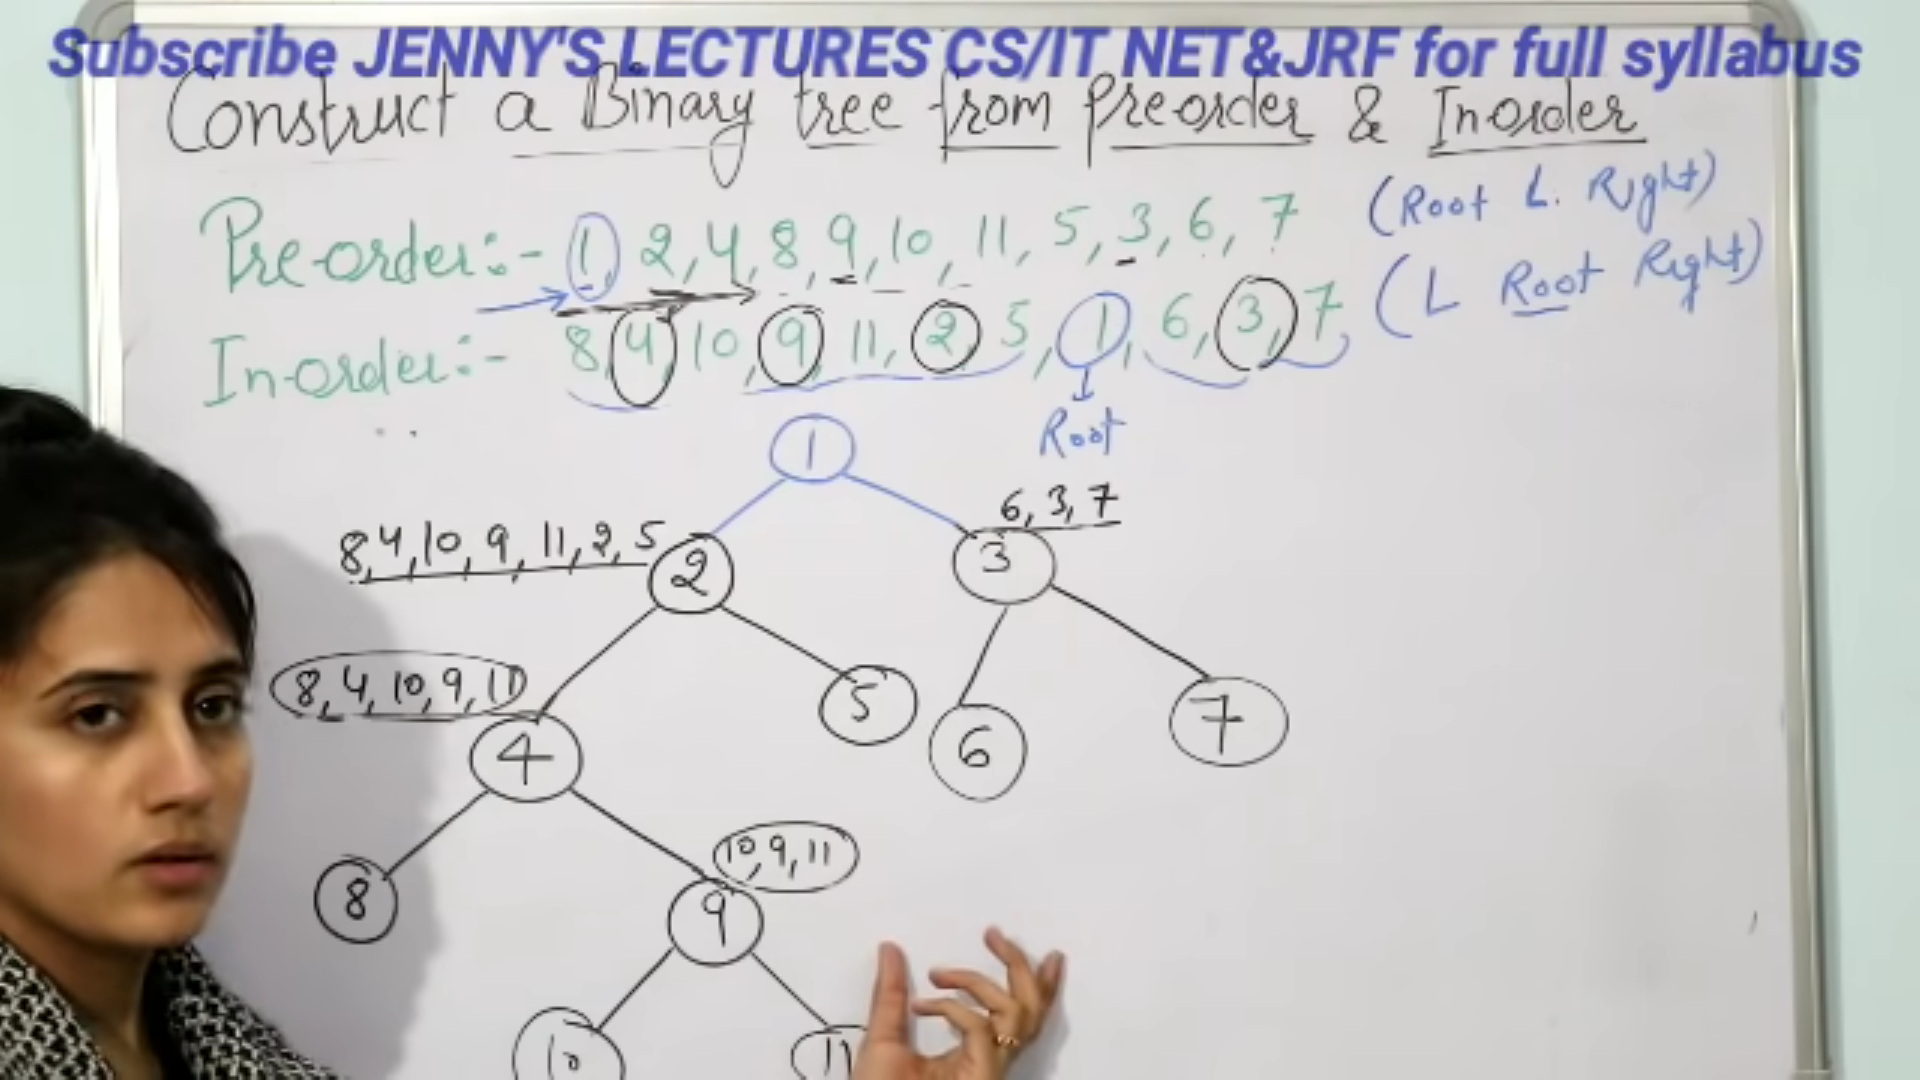 Subscribe JENNY'S LECTURES CS/IT NET&JRF for full syllabus
Construct a Binary tree from Preorder & Inorder
Pre-order:- 1, 2, 4, 8, 9, 10, 11, 5, 3, 6, 7 (Root L. Right)
In-order:- 8, 4, 10, 9, 11, 2, 5, 1, 6, 3, 7 (L Root Right)
Root
1
6, 3, 7
8, 4, 10, 9, 11, 2, 5
2
3
8, 4, 10, 9, 11
4
5
6
7
10, 9, 11
8
9
10
11